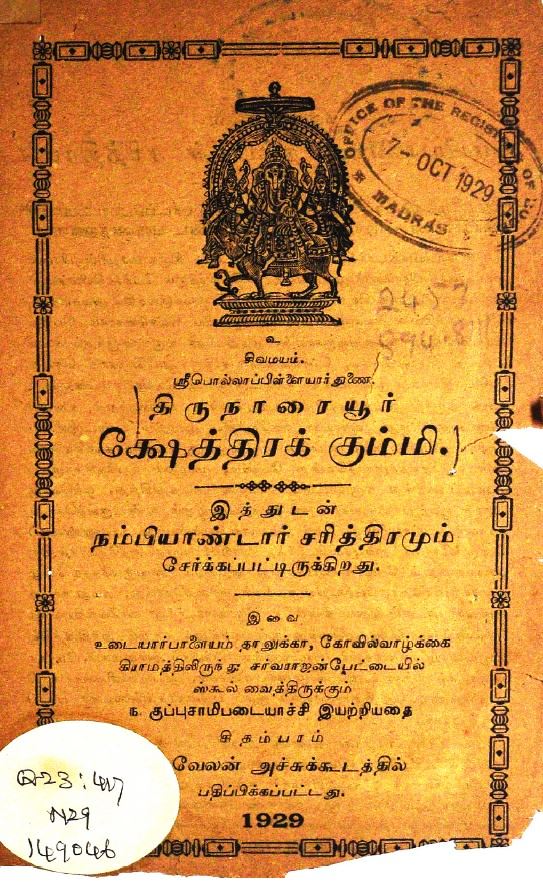 OFFICE OF THE REGISTRAR OF
7-OCT 1929
MADRAS
2457
894.811
உ
சிவமயம்.
ஸ்ரீபொல்லாப்பிள்ளையார்துணை.
திருநாரையூர்
க்ஷேத்திரக் கும்மி.
இத்துடன்
நம்பியாண்டார் சரித்திரமும்
சேர்க்கப்பட்டிருக்கிறது.
இவை
உடையார்பாளையம் தாலுக்கா, கோவில்வாழ்க்கை
கிராமத்திலிருந்து சர்வராஜன்பேட்டையில்
ஸ்கூல் வைத்திருக்கும்
ந. குப்புசாமிபடையாச்சி இயற்றியதை
சிதம்பரம்
வேலன் அச்சுக்கூடத்தில்
பதிப்பிக்கப்பட்டது.
1929
Q23:417
N29
149046